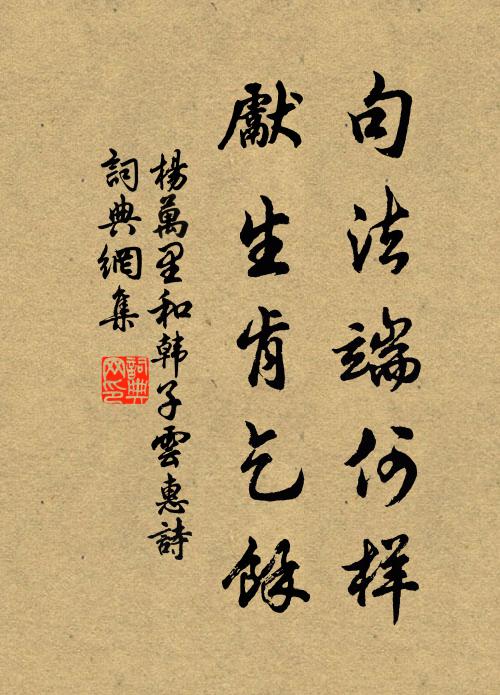 句法端何样
獻生肯乞餘
楊萬里和韩子雲惠詩
詞典網集
詞典网印